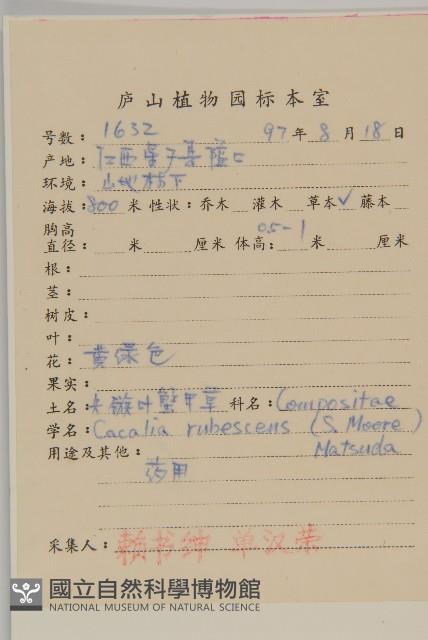 庐山植物园标本室
号数: 1632 97年 8月 18日
产地: 江西星子县
环境: 山地林下
海拔: 800米 性状: 乔木 灌木 草本✓ 藤本
胸高
直径: 米 厘米 体高: 0.5-1米 厘米
根:
茎:
树皮:
叶:
花: 黄绿色
果实:
土名: 矢镞叶蟹甲草 科名: Compositae
学名: Cacalia rubescens (S. Moere)
Matsuda
用途及其他:
药用
采集人: 赖书绅 单汉荣
國立自然科學博物館
NATIONAL MUSEUM OF NATURAL SCIENCE